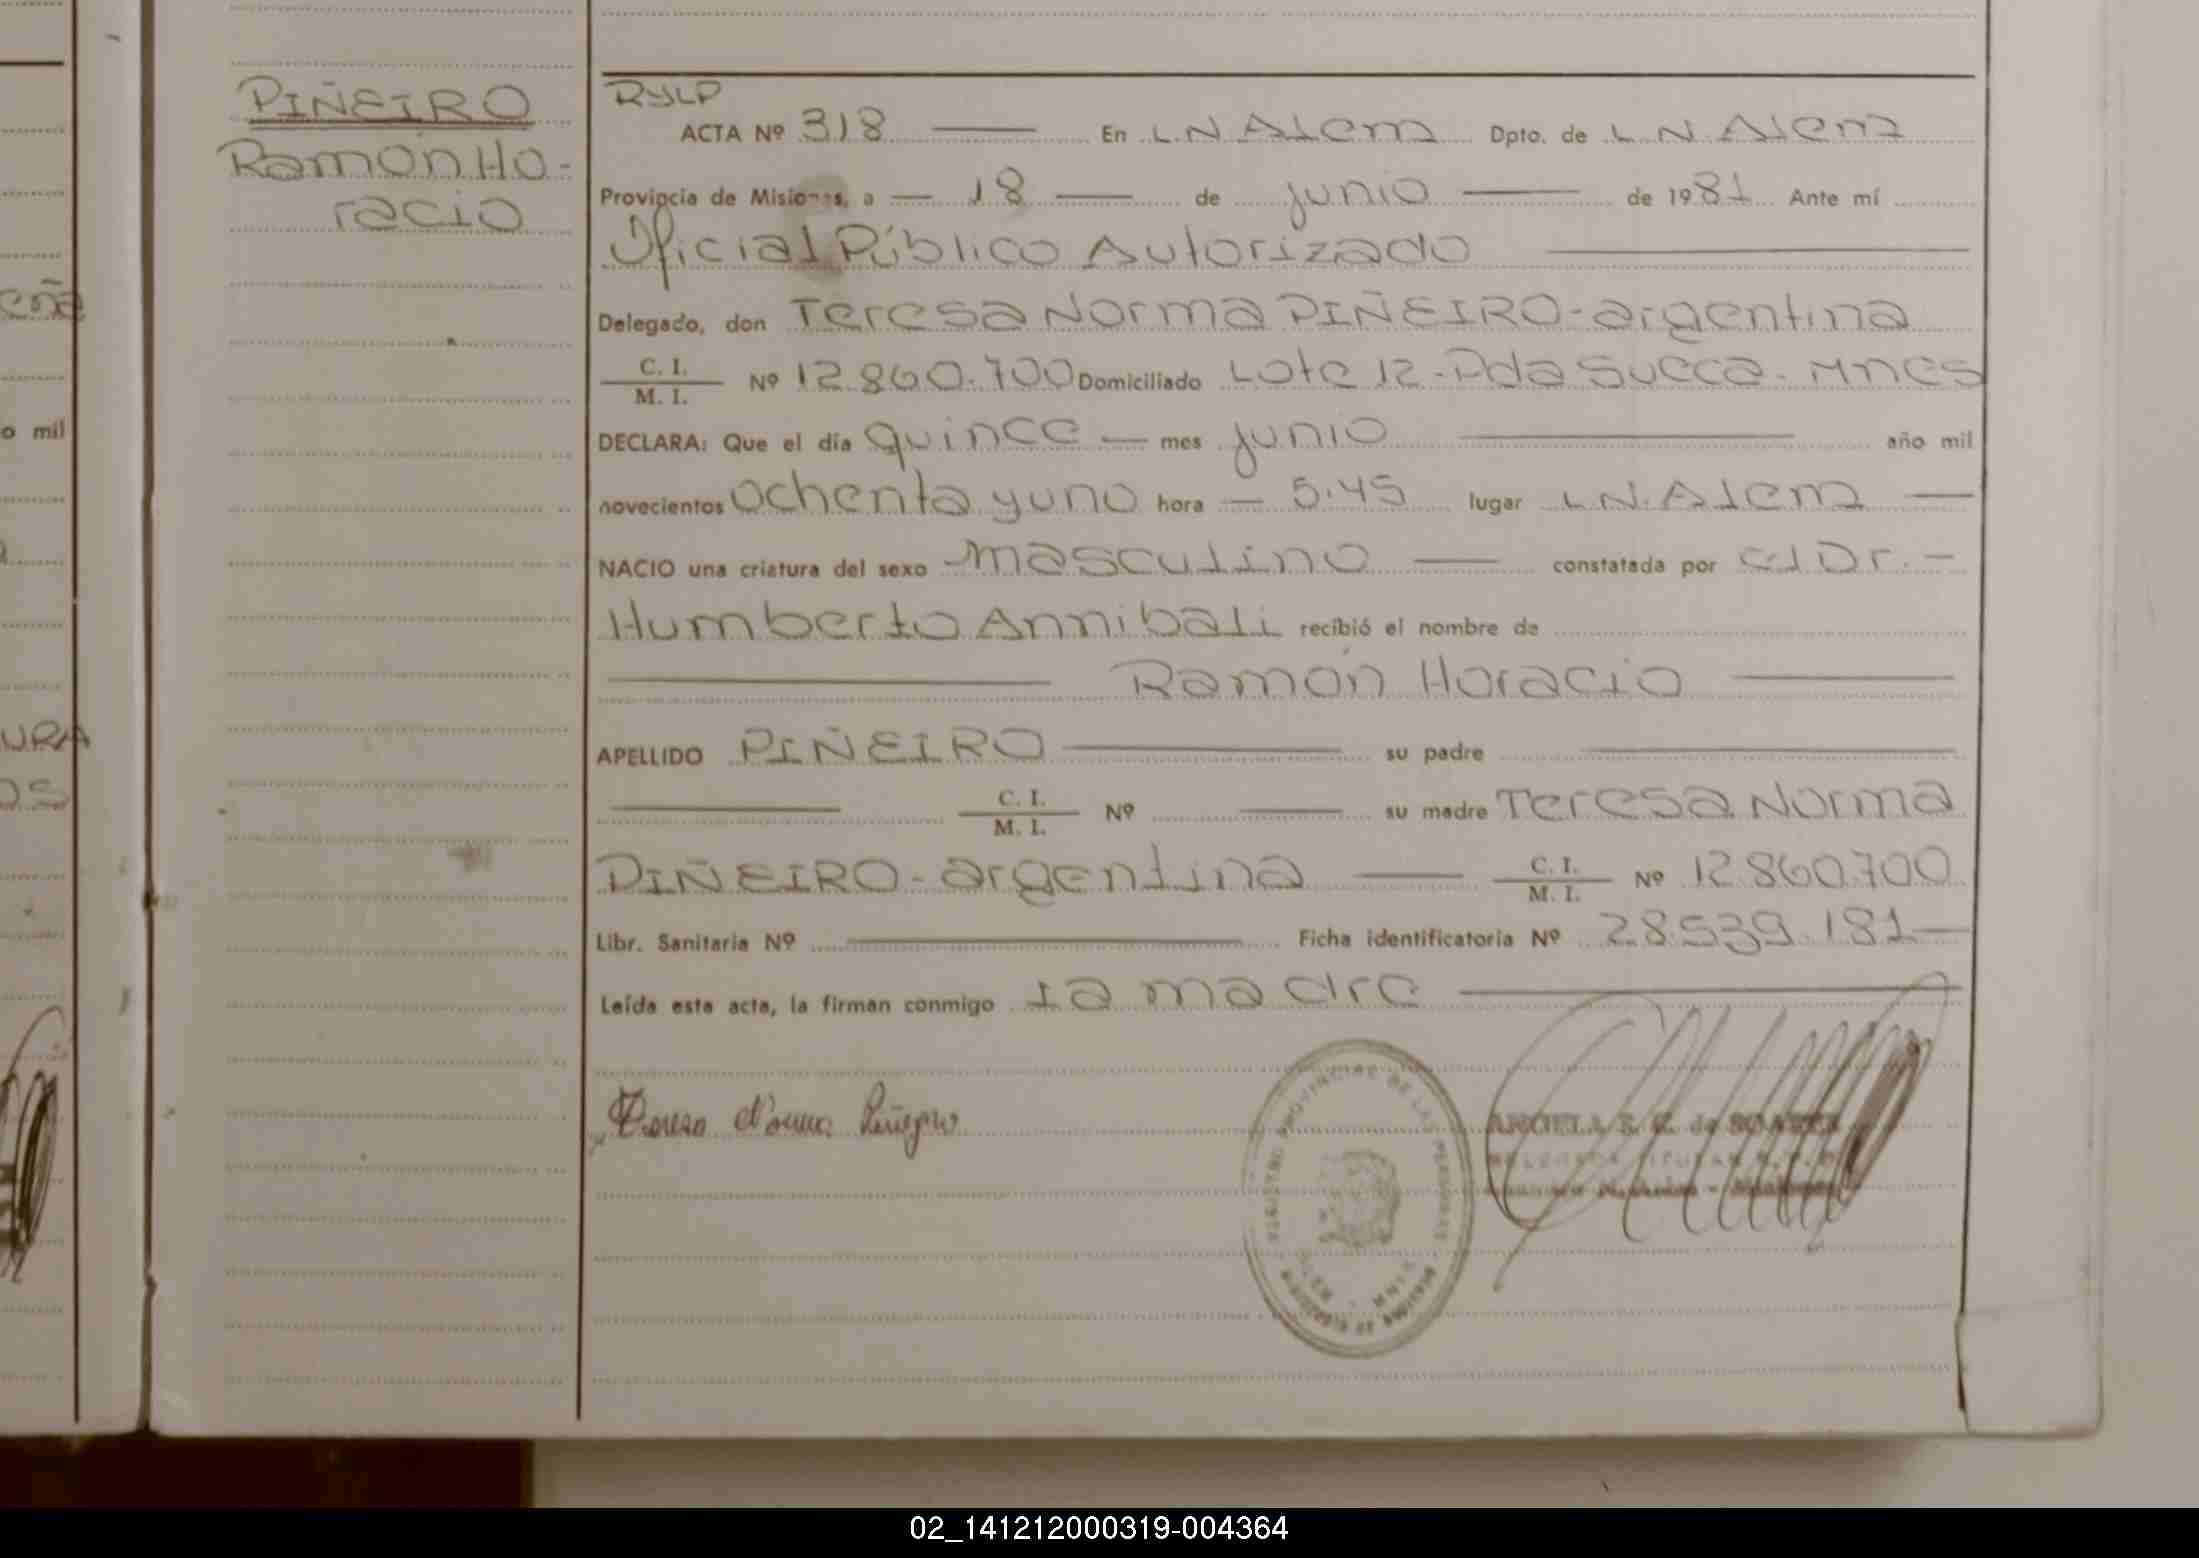 PIÑEIRO
Ramón Ho-
racio
eña
o mil
URA
OS
RYLP
ACTA Nº 318 En L.N.Alem Dpto. de L.N.Alem
Provincia de Misiones, a 18 de junio de 1981 Ante mí
Oficial Público Autorizado
Delegado, don Teresa Norma PIÑEIRO-argentina
C. I.
M. I. Nº 12.860.700 Domiciliado Lote 12-Pda Sueca-Mnes
DECLARA: Que el día quince mes junio año mil
novecientos ochenta y uno hora 5.45 lugar L.N.Alem
NACIO una criatura del sexo masculino constatada por el Dr.-
Humberto Annibali recibió el nombre de
Ramón Horacio
APELLIDO PIÑEIRO su padre
C. I.
M. I. Nº su madre Teresa Norma
PIÑEIRO-argentina C. I.
M. I. Nº 12.860.700
Libr. Sanitaria Nº Ficha identificatoria Nº 28.539.181
Leída esta acta, la firman conmigo la madre
Teresa Norma Piñeyro
REGISTRO PROVINCIAL DE LAS PERSONAS
ALEM - MNES
02_141212000319-004364